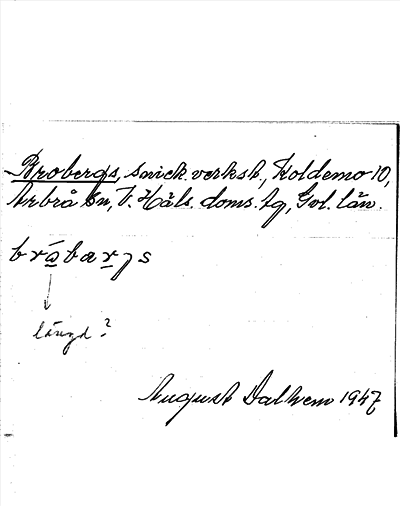 Brobergs, snick. verkst., Koldemo 10,
Arbrå sn, V. Häls. doms. tg, Gvl. län.
brabarjs
längd?
August Dalhem 1947